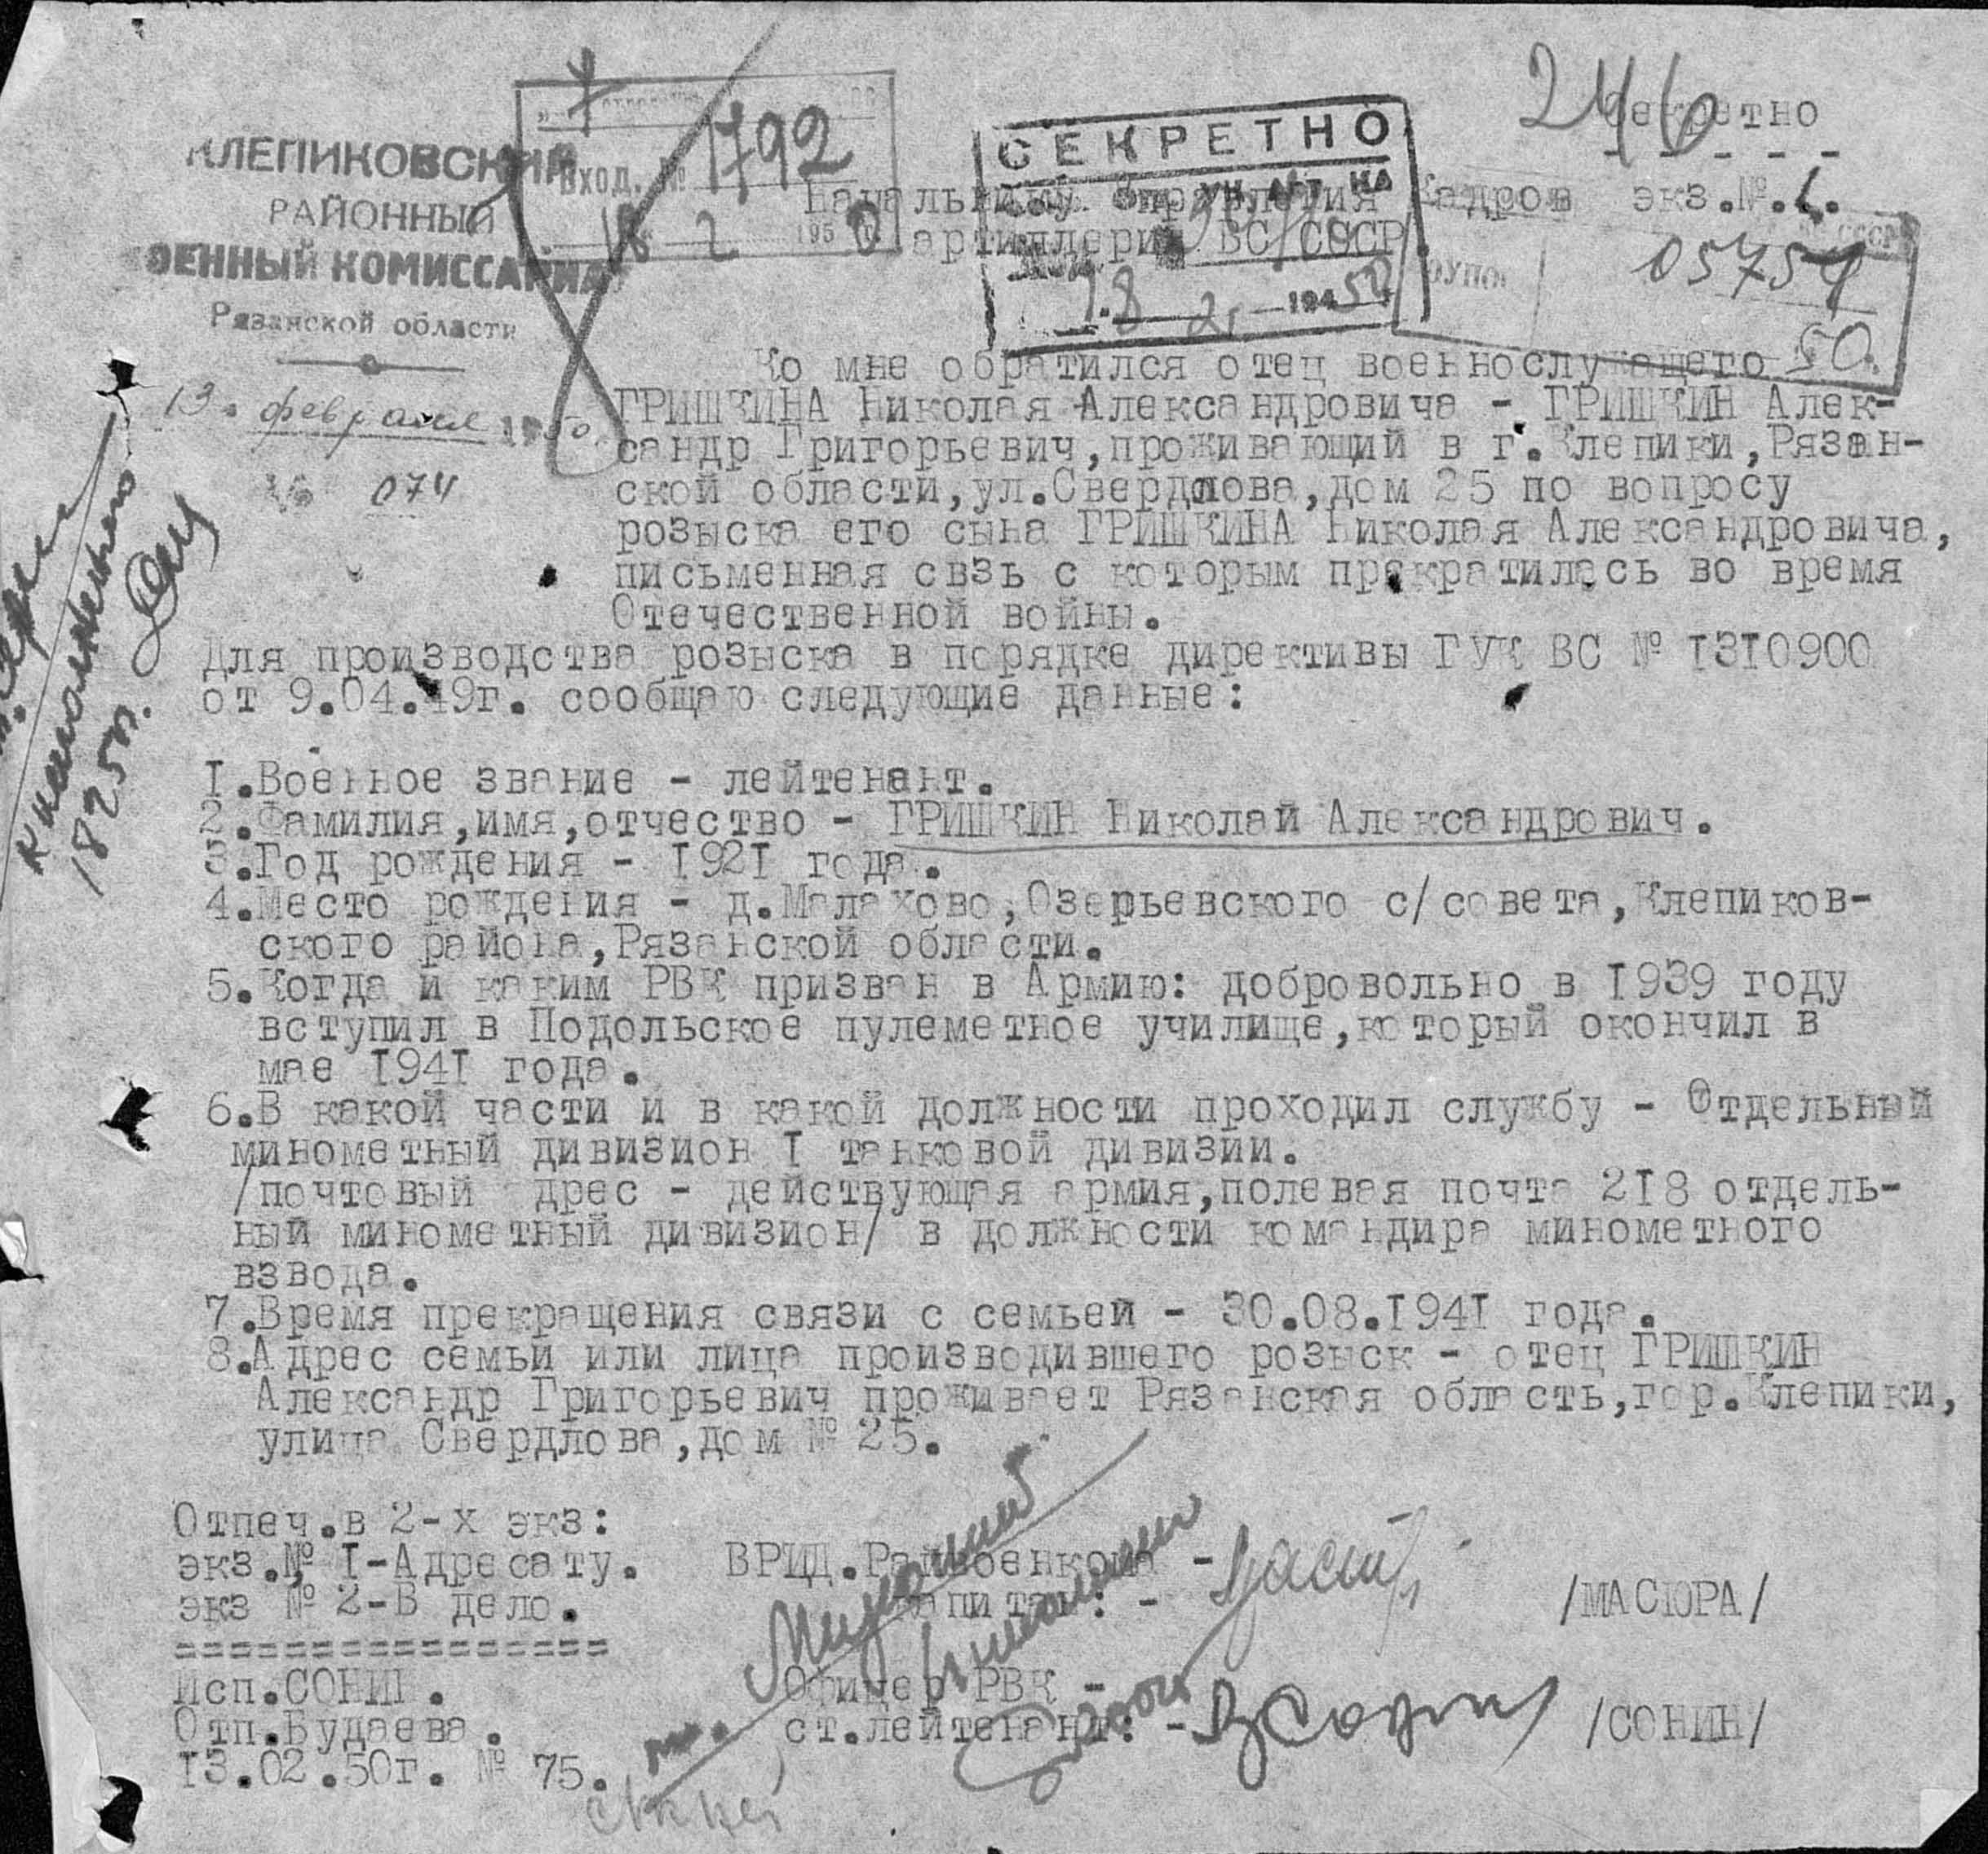 246
Секретно
КЛЕПИКОВСКИЙ
РАЙОННЫЙ
ВОЕННЫЙ КОМИССАРИАТ
Рязанской области
13. февраля 1950.
№ 074
Вход. № 1792
18 2 1950 г.
СЕКРЕТНО
18 2. 1945 50
Начальнику Управления Кадров экз.№.1.
артиллерии ВС СССР
05754
50.
Ко мне обратился отец военнослужащего
ГРИШКИНА Николая Александровича - ГРИШКИН Алек-
сандр Григорьевич,проживающий в г.Клепики,Рязан-
ской области,ул.Свердлова,дом 25 по вопросу
розыска его сына ГРИШКИНА Николая Александровича,
письменная свзь с которым прекратилась во время
Отечественной войны.
Для производства розыска в порядке директивы ГУК ВС № I3I0900
от 9.04.49г. сообщаю следующие данные:
I.Военное звание - лейтенант.
2.Фамилия,имя,отчество - ГРИШКИН Николай Александрович.
3.Год рождения - I92I года.
4.Место рождения - д.Малахово,Озерьевского с/совета,Клепиков-
ского района,Рязанской области.
5.Когда и каким РВК призван в Армию: добровольно в I939 году
вступил в Подольское пулеметное училище,который окончил в
мае I94I года.
6.В какой части и в какой должности проходил службу - Отдельный
минометный дивизион I танковой дивизии.
/почтовый дрес - действующая армия,полевая почта 2I8 отдель-
ный минометный дивизион/ в должности командира минометного
взвода.
7.Время прекращения связи с семьей - 30.08.I94I года.
8.Адрес семьи или лица производившего розыск - отец ГРИШКИН
Александр Григорьевич проживает Рязанская область,гор.Клепики,
улица Свердлова,дом № 25.
Отпеч.в 2-х экз:
экз.№ I-Адресату.
экз № 2-В дело.
================
Исп.СОНИН.
Отп.Будаева.
I3.02.50г. № 75.
ВРИД.Райвоенкома -
капитан: - /МАСЮРА/
Офицер РВК -
ст.лейтенант: - /СОНИН/